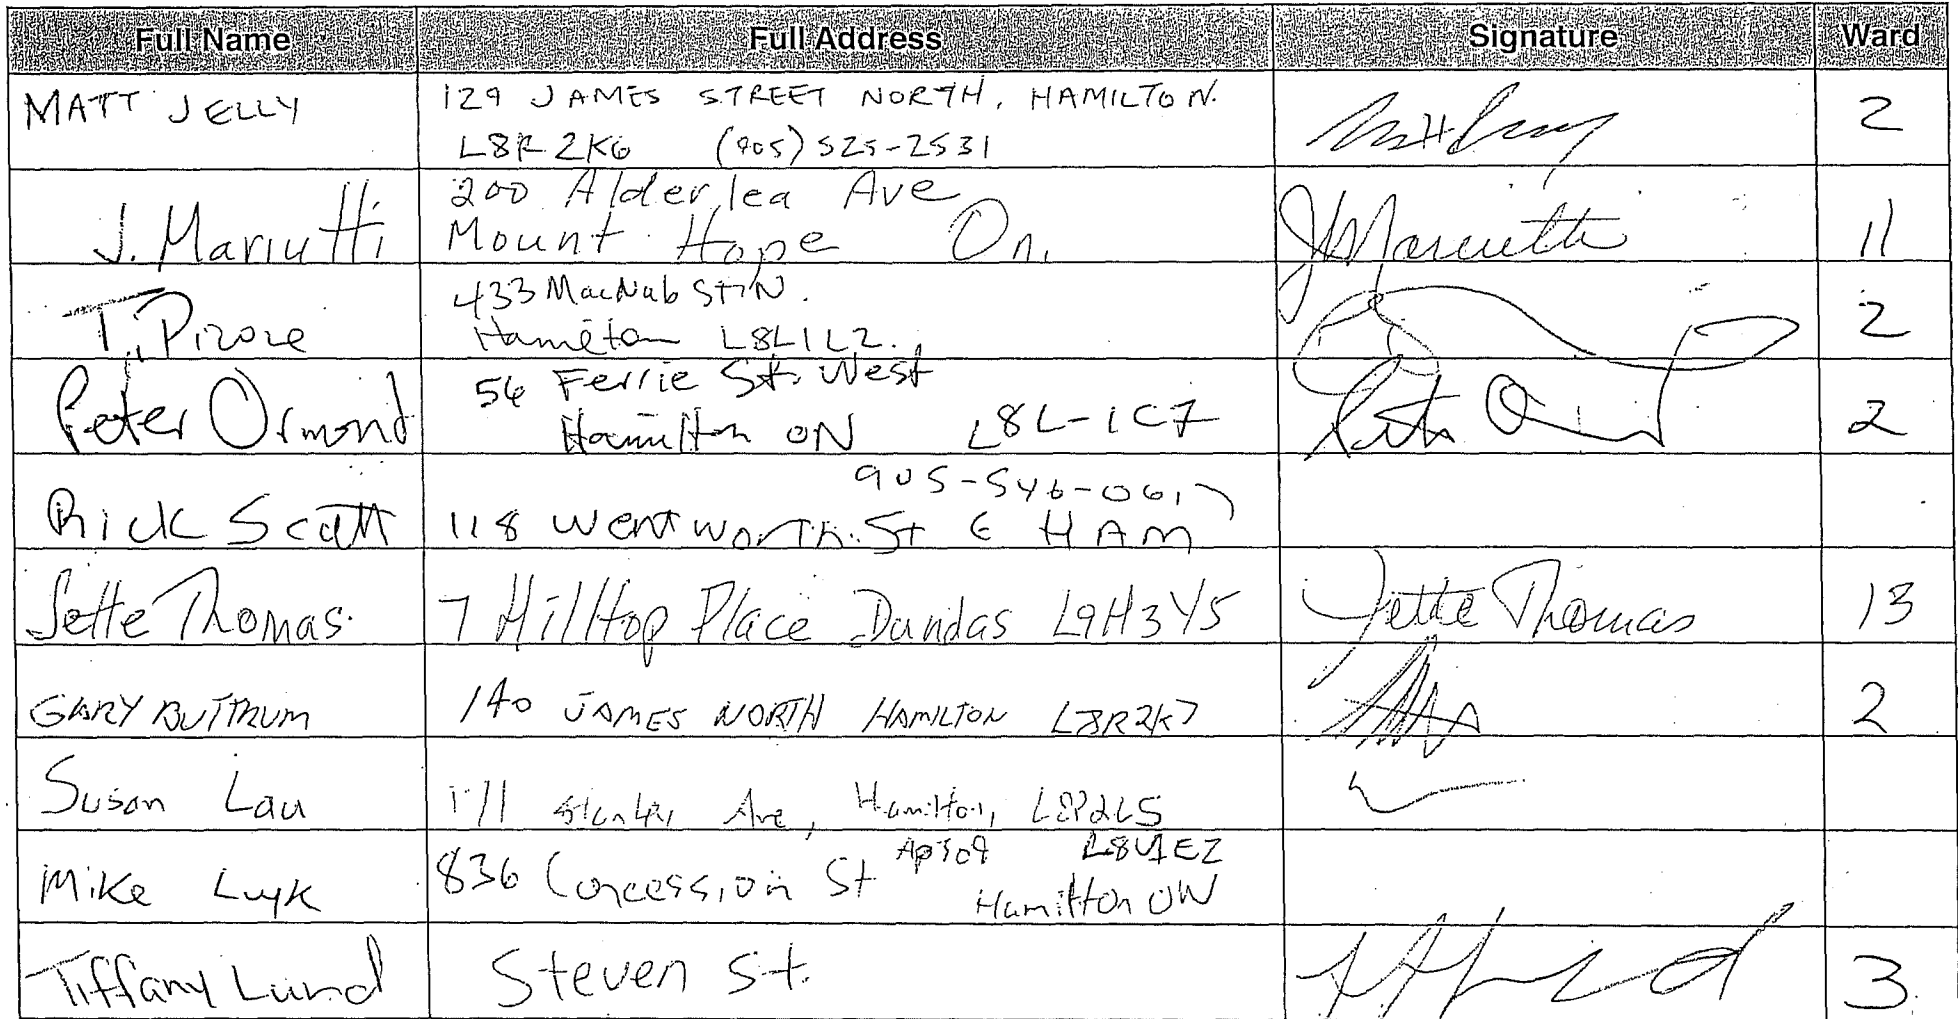 Full Name Full Address Signature Ward
MATT JELLY 129 JAMES STREET NORTH, HAMILTON. 2
L8R 2K6 (905) 525-2531
J. Mariutti 200 Alderlea Ave J Mariutti 11
Mount Hope On.
T. Pirone 433 MacNab St. N. 2
Hamilton L8L1L2.
Peter Ormond 56 Ferrie St. West 2
Hamilton ON L8L-1C7
905-546-0617
Rick Scott 118 Wentworth St HAM
Jette Thomas. 7 Hilltop Place Dundas L9H3Y5 Jette Thomas 13
GARY BUTTRUM 140 JAMES NORTH HAMILTON L8R2K7 2
Susan Lau Stanley Ave, Hamilton, L8P2L5
Mike Luyk 836 Concession St L8V1E2
Hamilton ON
Tiffany Lund Steven St. 3